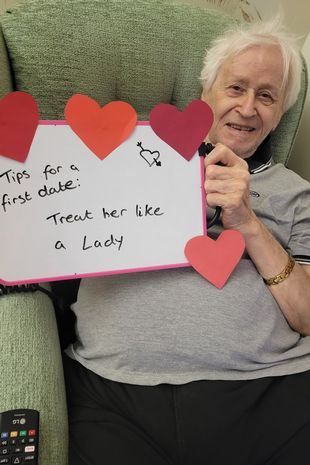 Tips for a
first date:
Treat her like
a Lady
LG